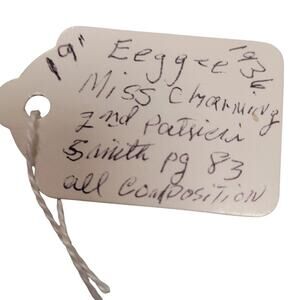 19" Eegee 1936
Miss Charming
2nd Patricia
Smith pg 83
all composition